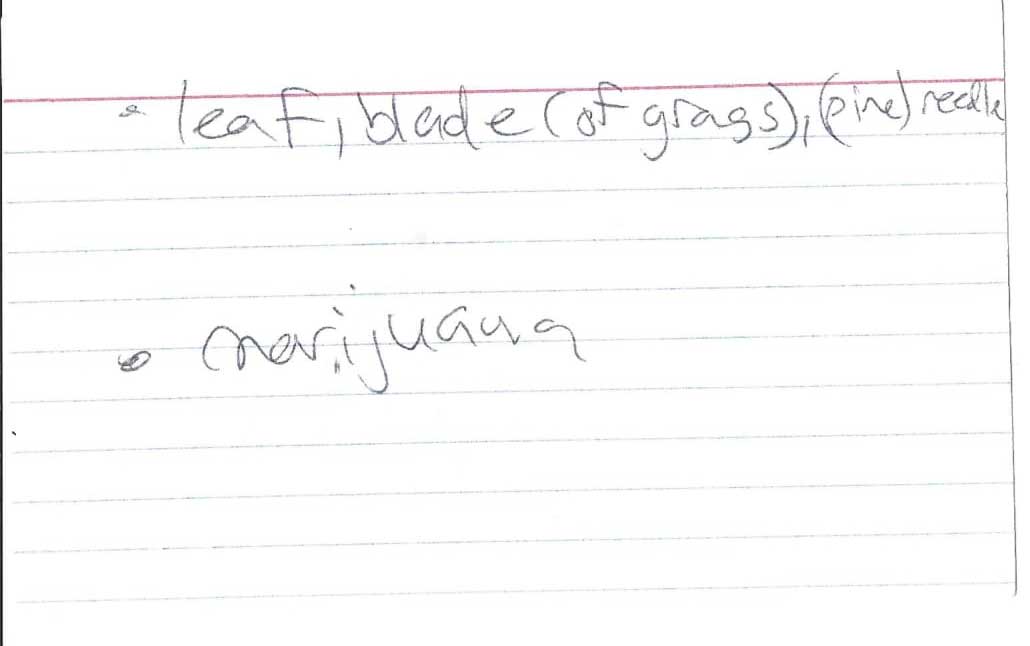 • leaf, blade (of grass), (pine) needle
• marijuana